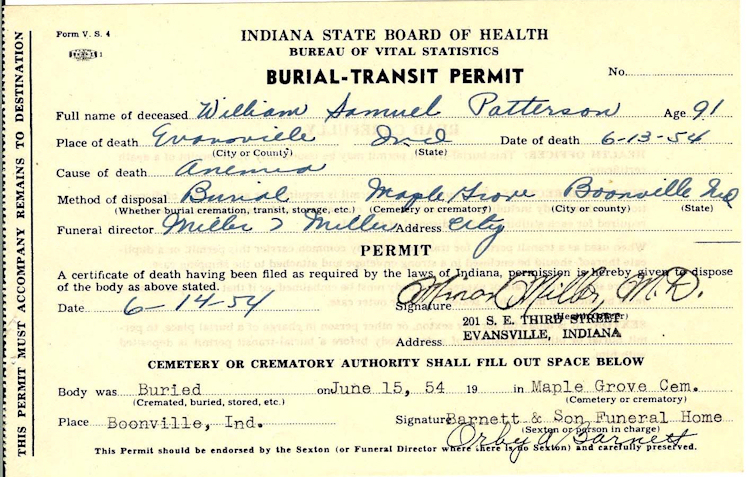 THIS PERMIT MUST ACCOMPANY REMAINS TO DESTINATION
Form V. S. 4
INDIANA STATE BOARD OF HEALTH
BUREAU OF VITAL STATISTICS
BURIAL-TRANSIT PERMIT
No.
Full name of deceased William Samuel Patterson Age 91
Place of death Evansville Ind Date of death 6-13-54
(City or County) (State)
Cause of death Anemia
Method of disposal Burial Maple Grove Boonville Ind
(Whether burial cremation, transit, storage, etc.) (Cemetery or crematory) (City or county) (State)
Funeral director Miller & Miller Address City
PERMIT
A certificate of death having been filed as required by the laws of Indiana, permission is hereby given to dispose
of the body as above stated.
Date 6-14-54 Signature Miller, M.D.
(Health Officer)
201 S. E. THIRD STREET
Address EVANSVILLE, INDIANA
CEMETERY OR CREMATORY AUTHORITY SHALL FILL OUT SPACE BELOW
Body was Buried on June 15, 54 19 in Maple Grove Cem.
(Cremated, buried, stored, etc.) (Cemetery or crematory)
Place Boonville, Ind. Signature Barnett & Son Funeral Home
(Sexton or person in charge)
Orby A Barnett
This Permit should be endorsed by the Sexton (or Funeral Director where there is no Sexton) and carefully preserved.